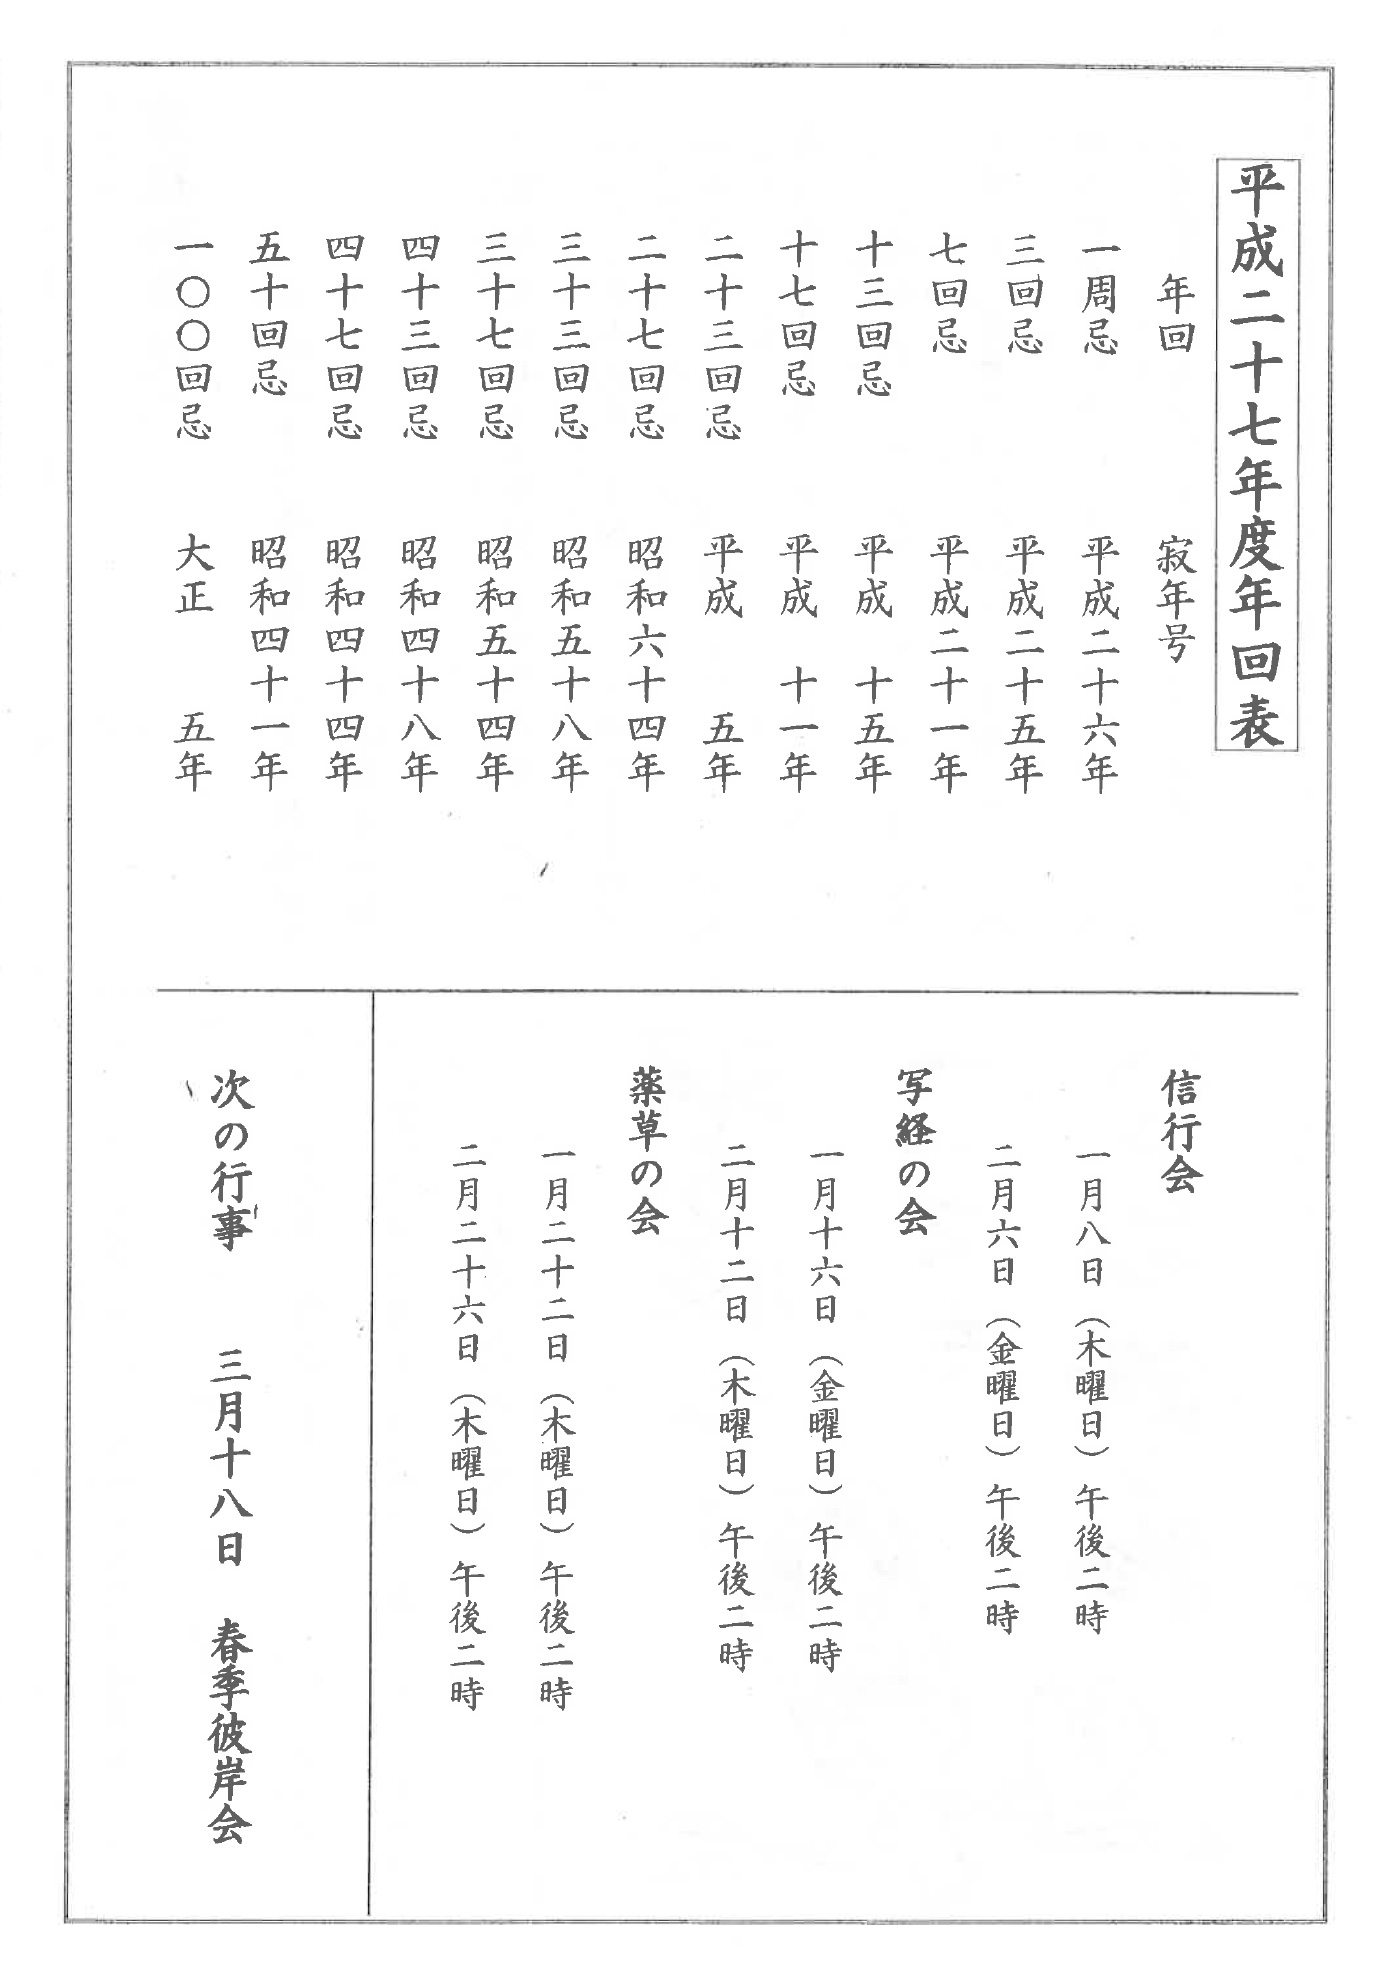 平成二十七年度年回表
年回　寂年号
一周忌　平成二十六年
三回忌　平成二十五年
七回忌　平成二十一年
十三回忌　平成　十五年
十七回忌　平成　十一年
二十三回忌　平成　五年
二十七回忌　昭和六十四年
三十三回忌　昭和五十八年
三十七回忌　昭和五十四年
四十三回忌　昭和四十八年
四十七回忌　昭和四十四年
五十回忌　昭和四十一年
一〇〇回忌　大正　五年
信行会
一月八日（木曜日）午後二時
二月六日（金曜日）午後二時
写経の会
一月十六日（金曜日）午後二時
二月十二日（木曜日）午後二時
薬草の会
一月二十二日（木曜日）午後二時
二月二十六日（木曜日）午後二時
次の行事　三月十八日　春季彼岸会